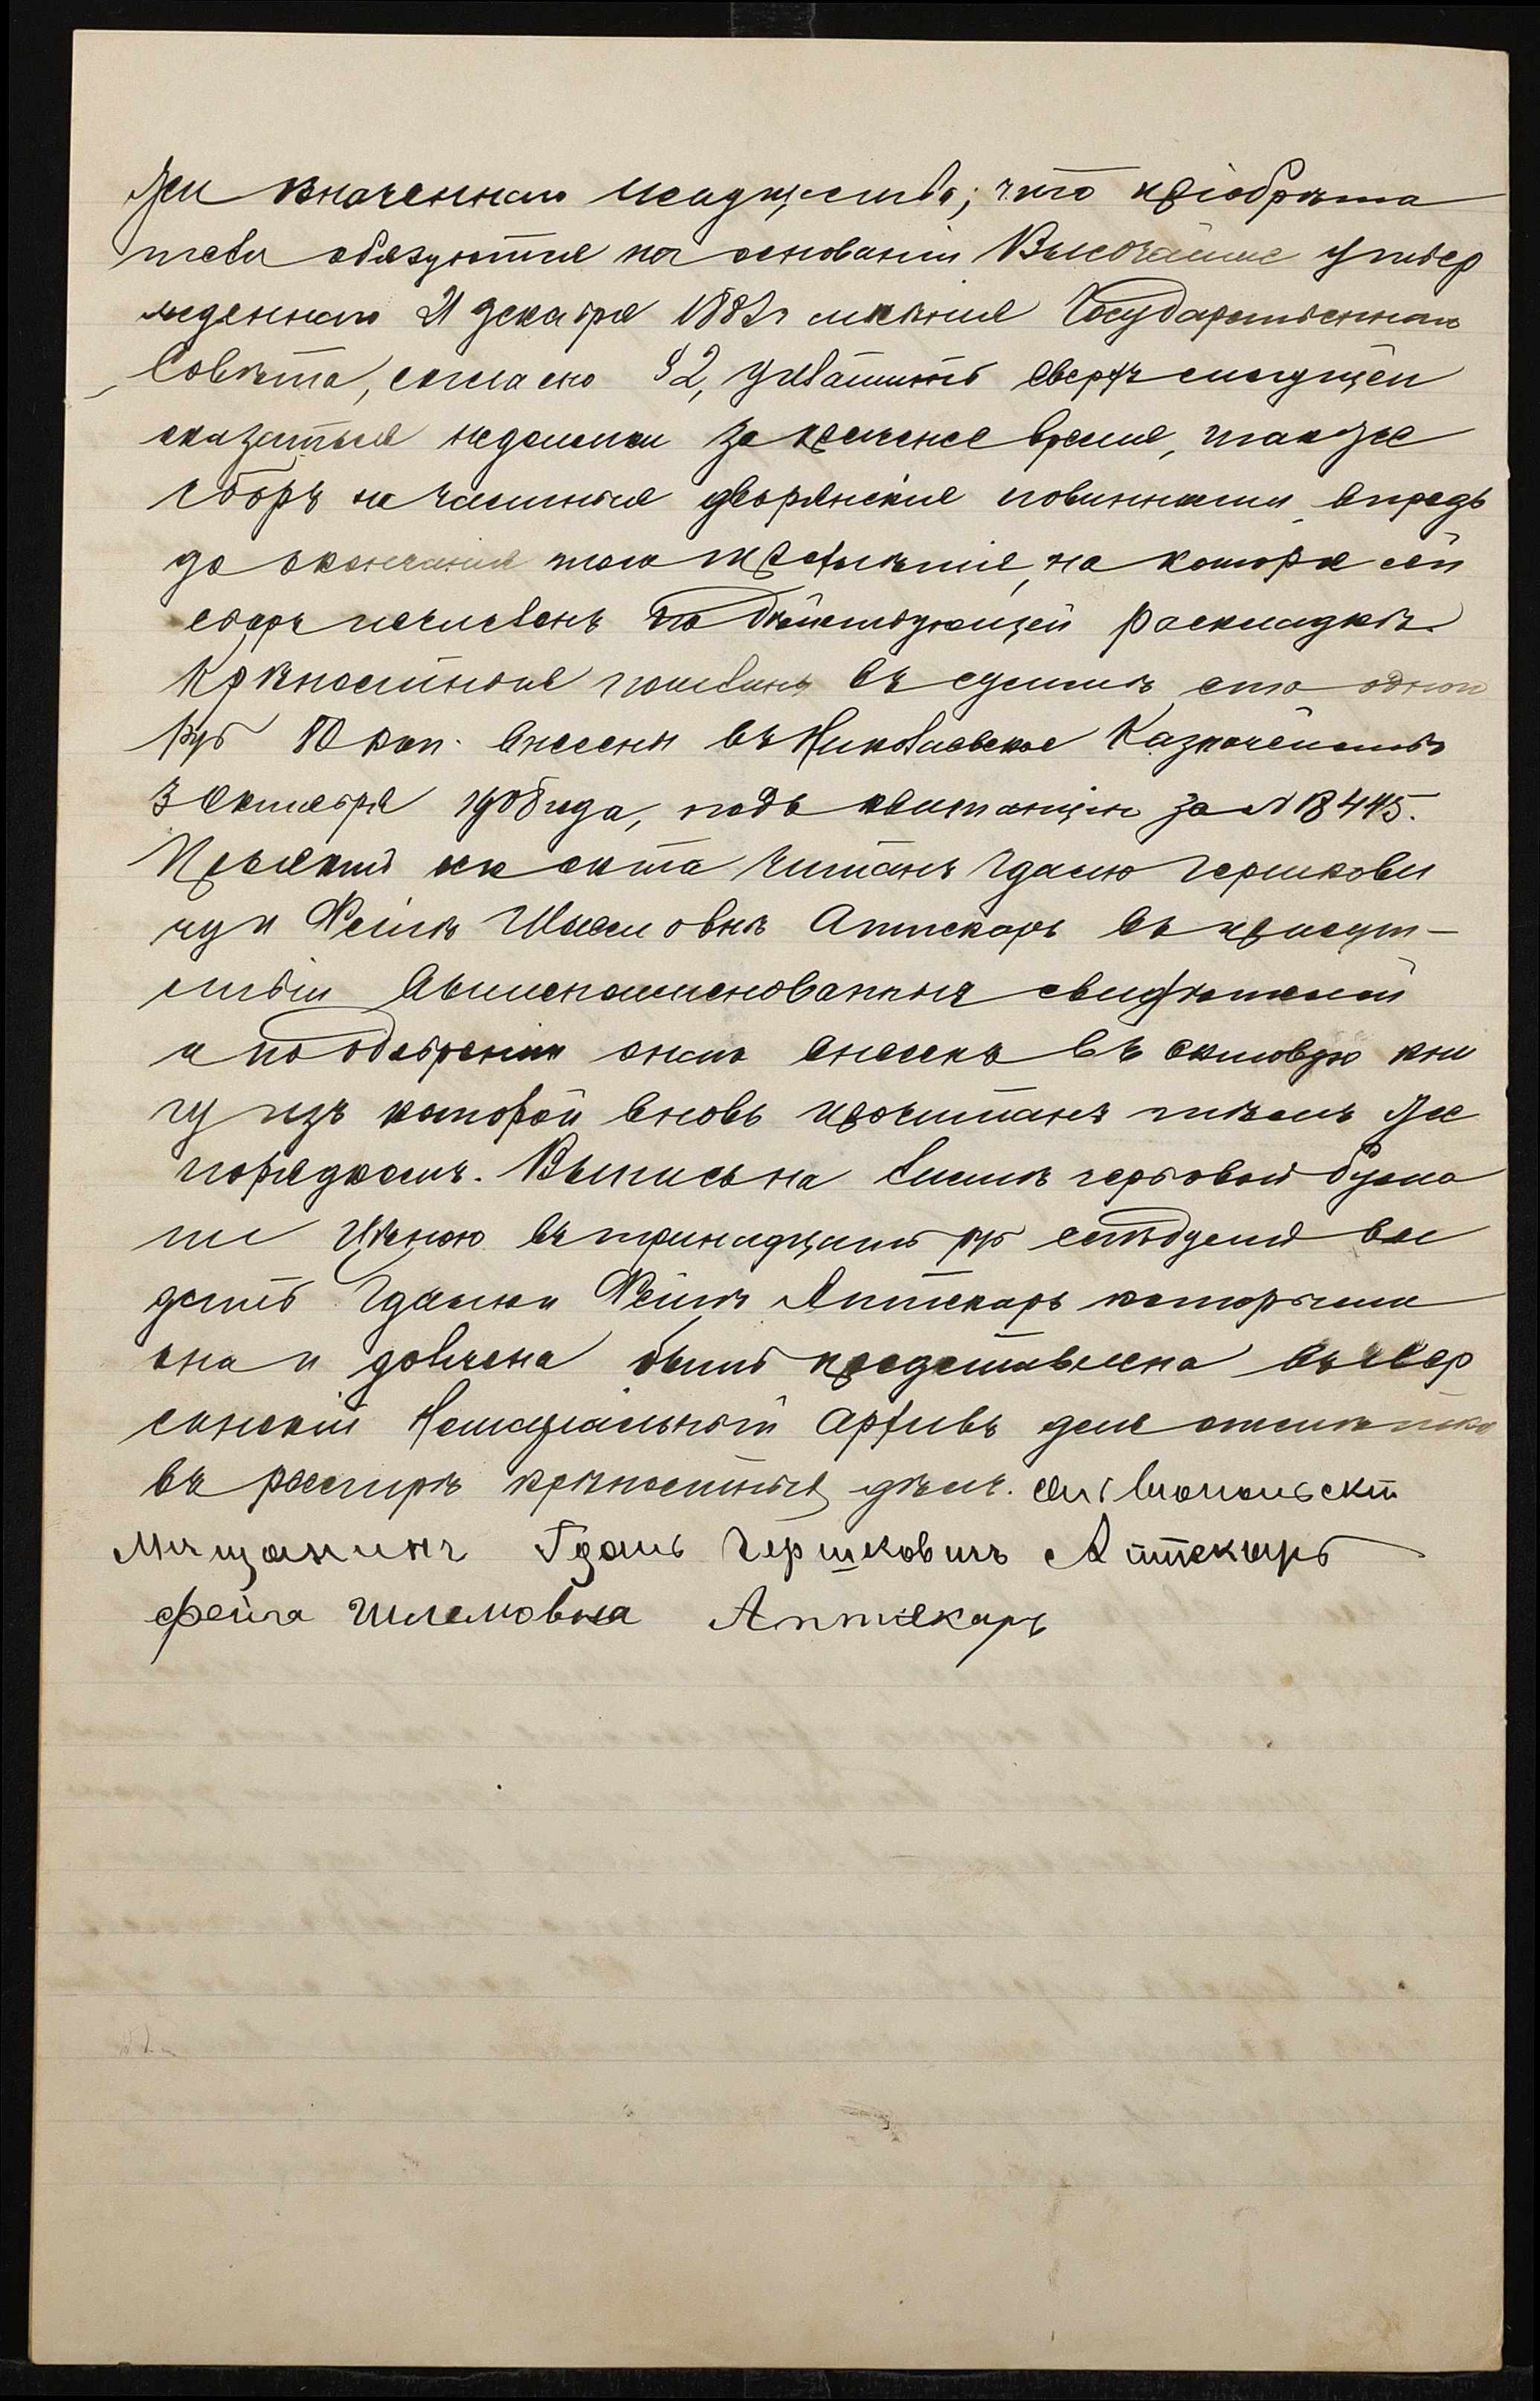 же значеннаго имущества; что пріобрѣта
тели обязуются на основаніи Высочайше утвер
жденнаго 21 декабря 1882 г мнѣнія Государственнаго
Совѣта, согласно § 2, уплатить сверхъ могущей
оказаться недоимки за прежнее время, также
сборъ на частныя дворянскія повинности, впредь
до окончанія того трехлѣтія, на которое сей
сборъ исчисленъ по дѣйствующей раскладкѣ.
Крѣпостныя пошлины въ суммѣ сто одного
руб 80 коп. внесены въ Николаевское Казначейство
3 Октября 1908 года, подъ квитанцію за № 18445.
Проектъ акта читанъ Гдалю Гершкови
чу и Фейгѣ Шлемовнѣ Аптекарь въ присут-
ствіи вышепоименованныхъ свидѣтелей
и по одобреніи ими внесенъ въ актовую кни
гу изъ которой вновь прочитанъ тѣмъ же
порядкомъ. Выпись на листѣ гербовой бума
ги цѣною въ тринадцать руб слѣдуетъ вы
дать Гдалю и Фейгѣ Аптекарь которыми
она и должна быть представлена въ Хер
сонскій Нотаріальный Архивъ для отмѣтки
въ реестрѣ крѣпостныхъ дѣлъ.
Мещанинъ Гдаль Гершковичъ Аптекарь
Фейга Шлемовна Аптекарь